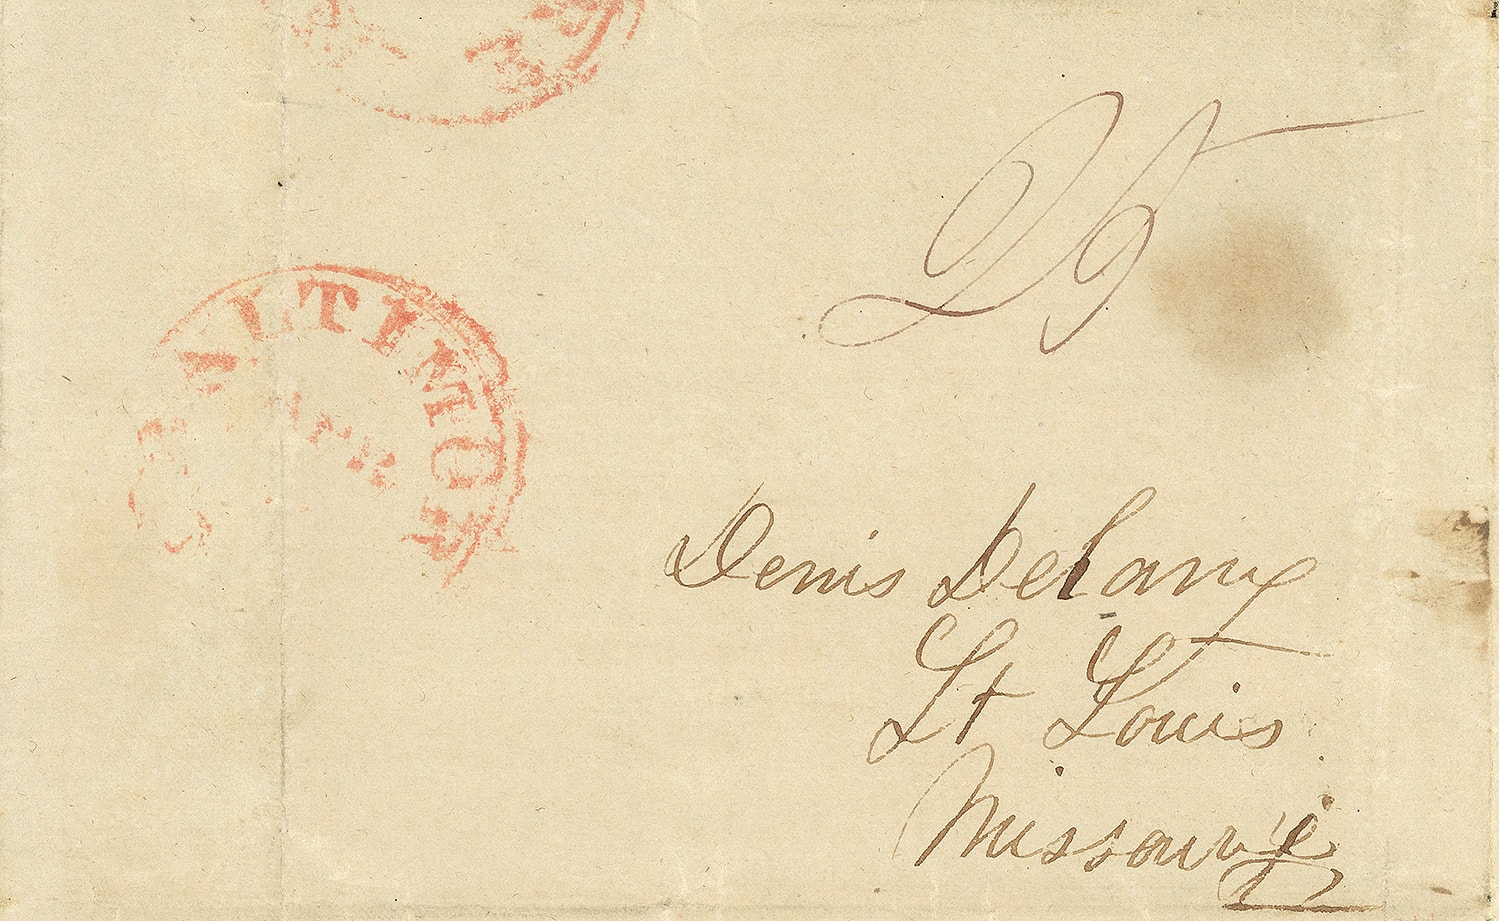 25
BALTIMORE
APR
Denis Delany
St Louis
Missouri